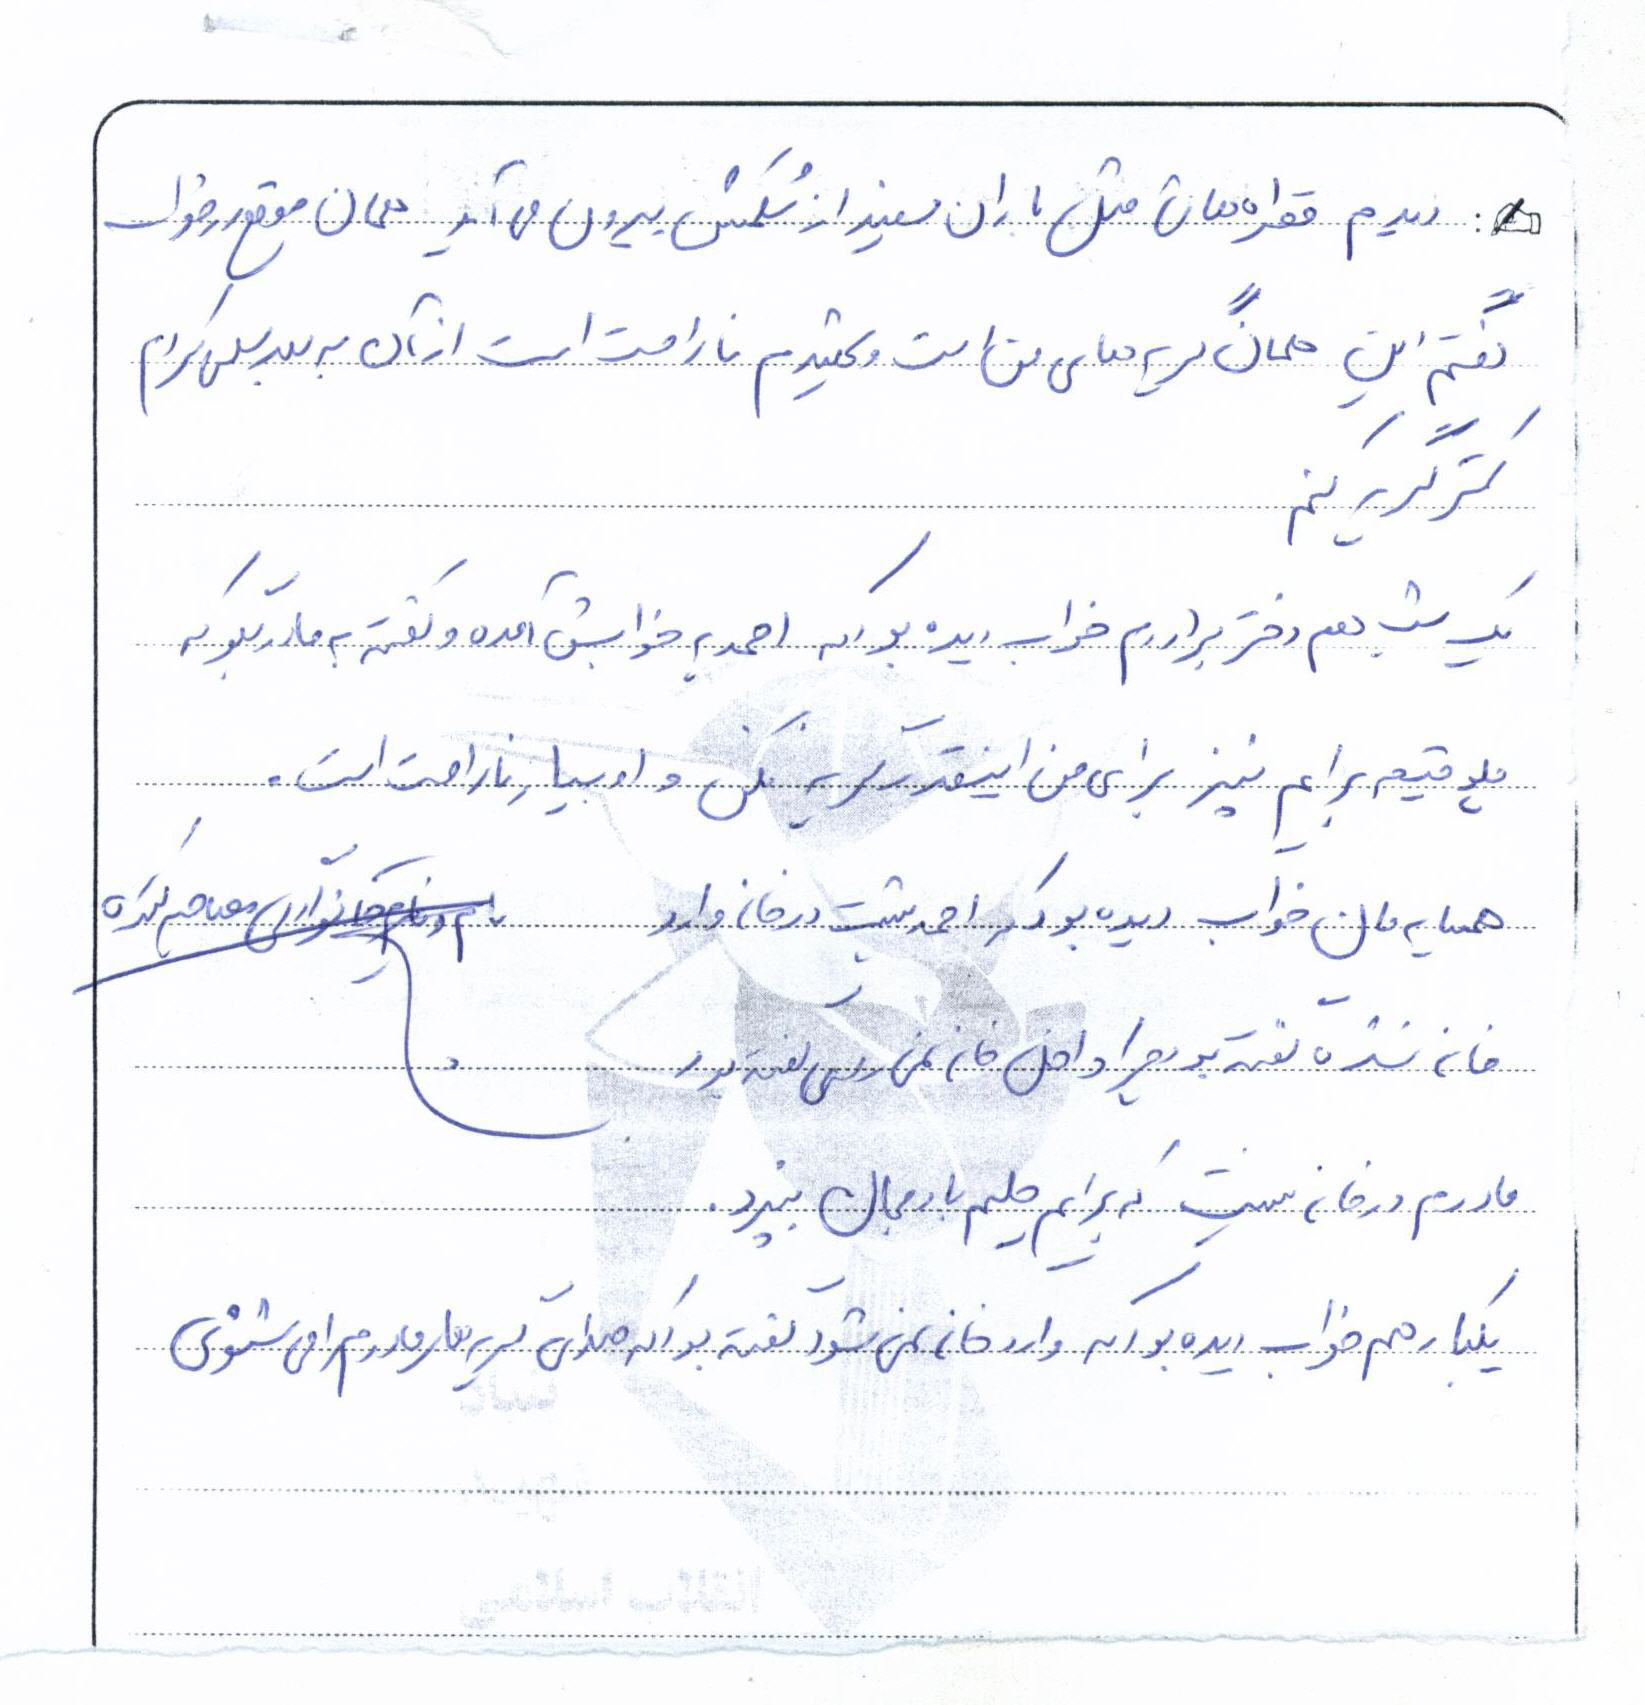 دیدم قطره هائی مثل باران سفید از شکمش بیرون می آید همان موقع در خواب
گفتم این همان گریه های من است و بچه ام ناراحت است از آن به بعد سعی کردم
کمتر گریه کنم
یک شب هم دختر برادرم خواب دیده بود که احمد به خوابش آمده و گفته به مادر بگو که
برایم نپز برای من اینقدر گریه نکن و او بسیار ناراحت است.
همسایه مان خواب دیده بود که احمد پشت در خانه وارد
خانه نشده گفته بود چرا داخل خانه نمی روی گفته بود
مادرم در خانه نیست که برایم حلیم بادمجان بپزد.
یکبار هم خواب دیده بود که وارد خانه نمی شود گفته بود که صدای گریه های مادرم را می شنوی